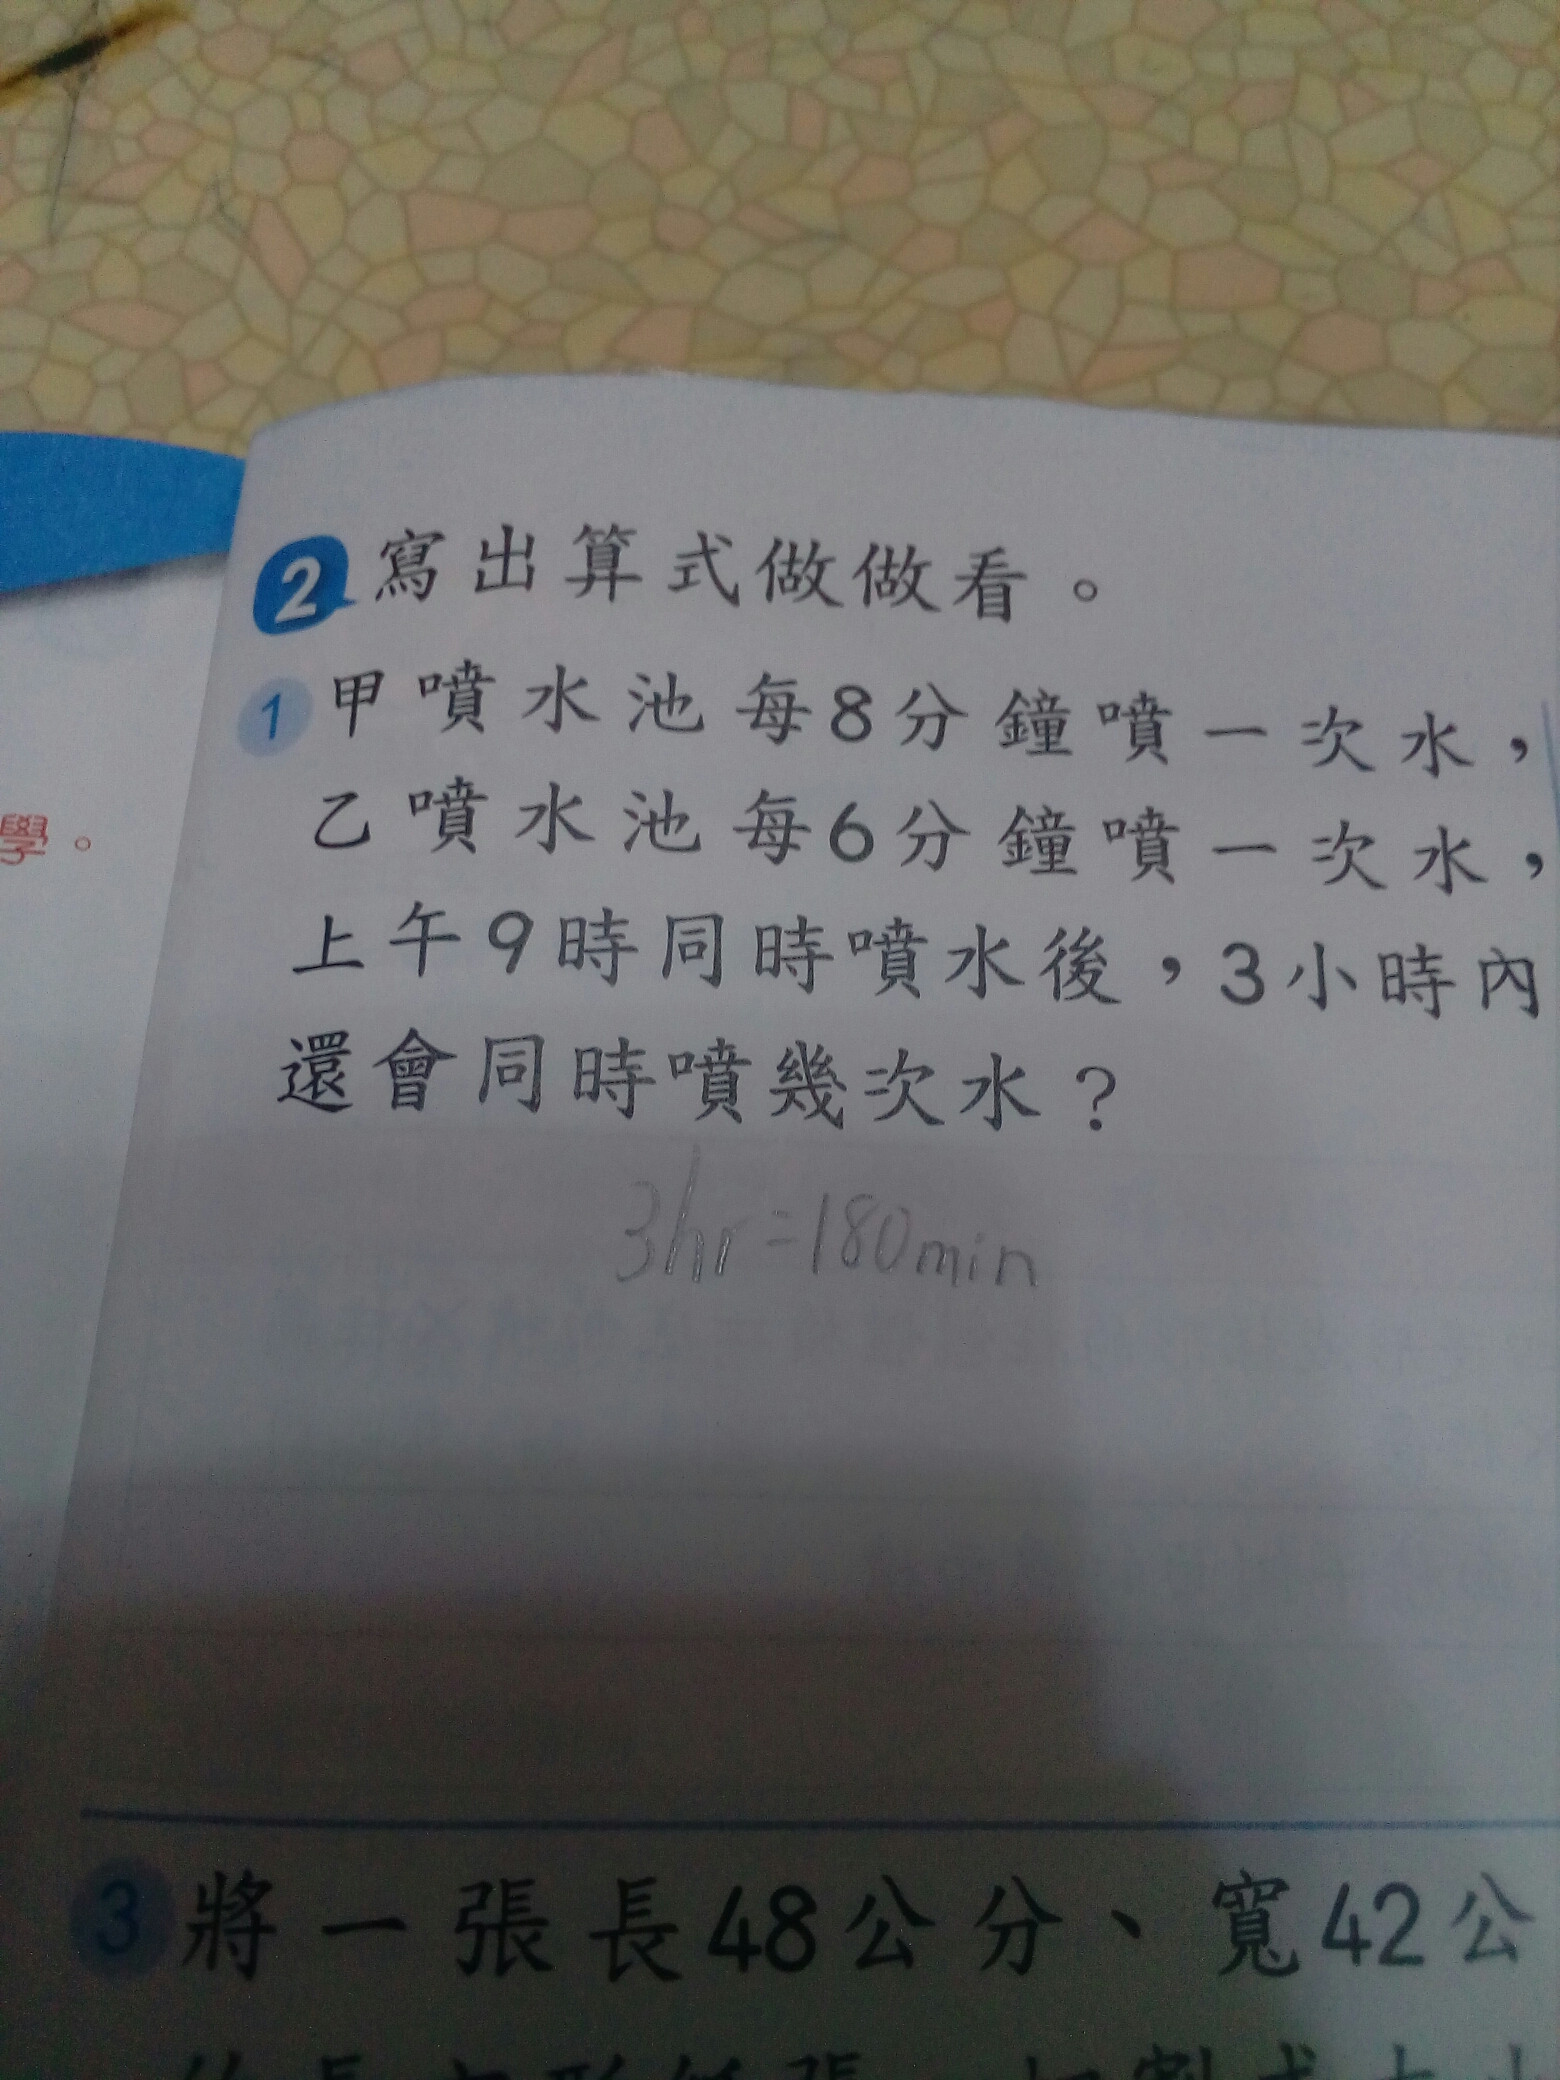 學。
2 寫出算式做做看。
1 甲噴水池每8分鐘噴一次水，
乙噴水池每6分鐘噴一次水，
上午9時同時噴水後，3小時內
還會同時噴幾次水？
3hr=180min
3 將一張長48公分、寬42公